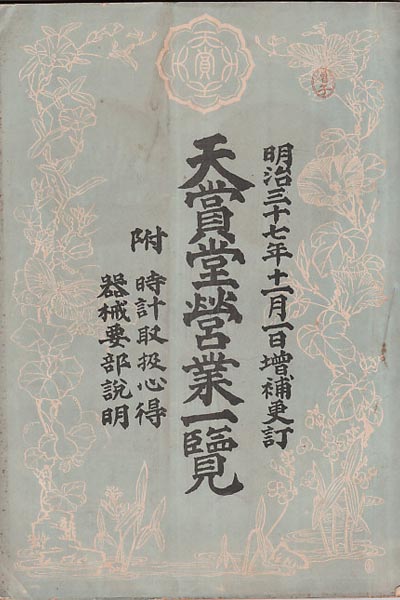 天賞堂
明治三十七年十一月一日增補更訂
天賞堂營業一覽
附
時計取扱心得
器械要部說明